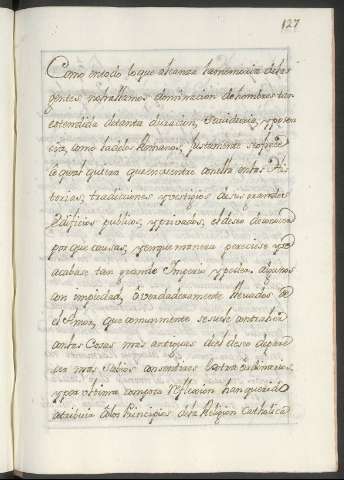 127
Como en todo lo que alcanza la memoria de las
gentes, no hallamos dominacion de hombres tan
estendida de tanta duracion, Savidoria, y poten
cia, como la de los Romanos, Justamente se ofrece
lo qual quiera que encuentre con ella en las His
torias, tradiciones, y vestigios de sus grandes
Edificios publicos, y privados, el deseo de conocer
por que causas, y en que manera pereciese y se
acabase tan grande Imperio y poder. Algunos
con impiedad, ò verdaderamente llevados de
el Amor, que comunmente se suele contra
contas Cosas mas antiguas, ò del deseo de pare
cer mas Sabios con sentires extraordinarios,
y por ultima con poca reflexion han querido
atribuir à los Principios de la Religion Catholica